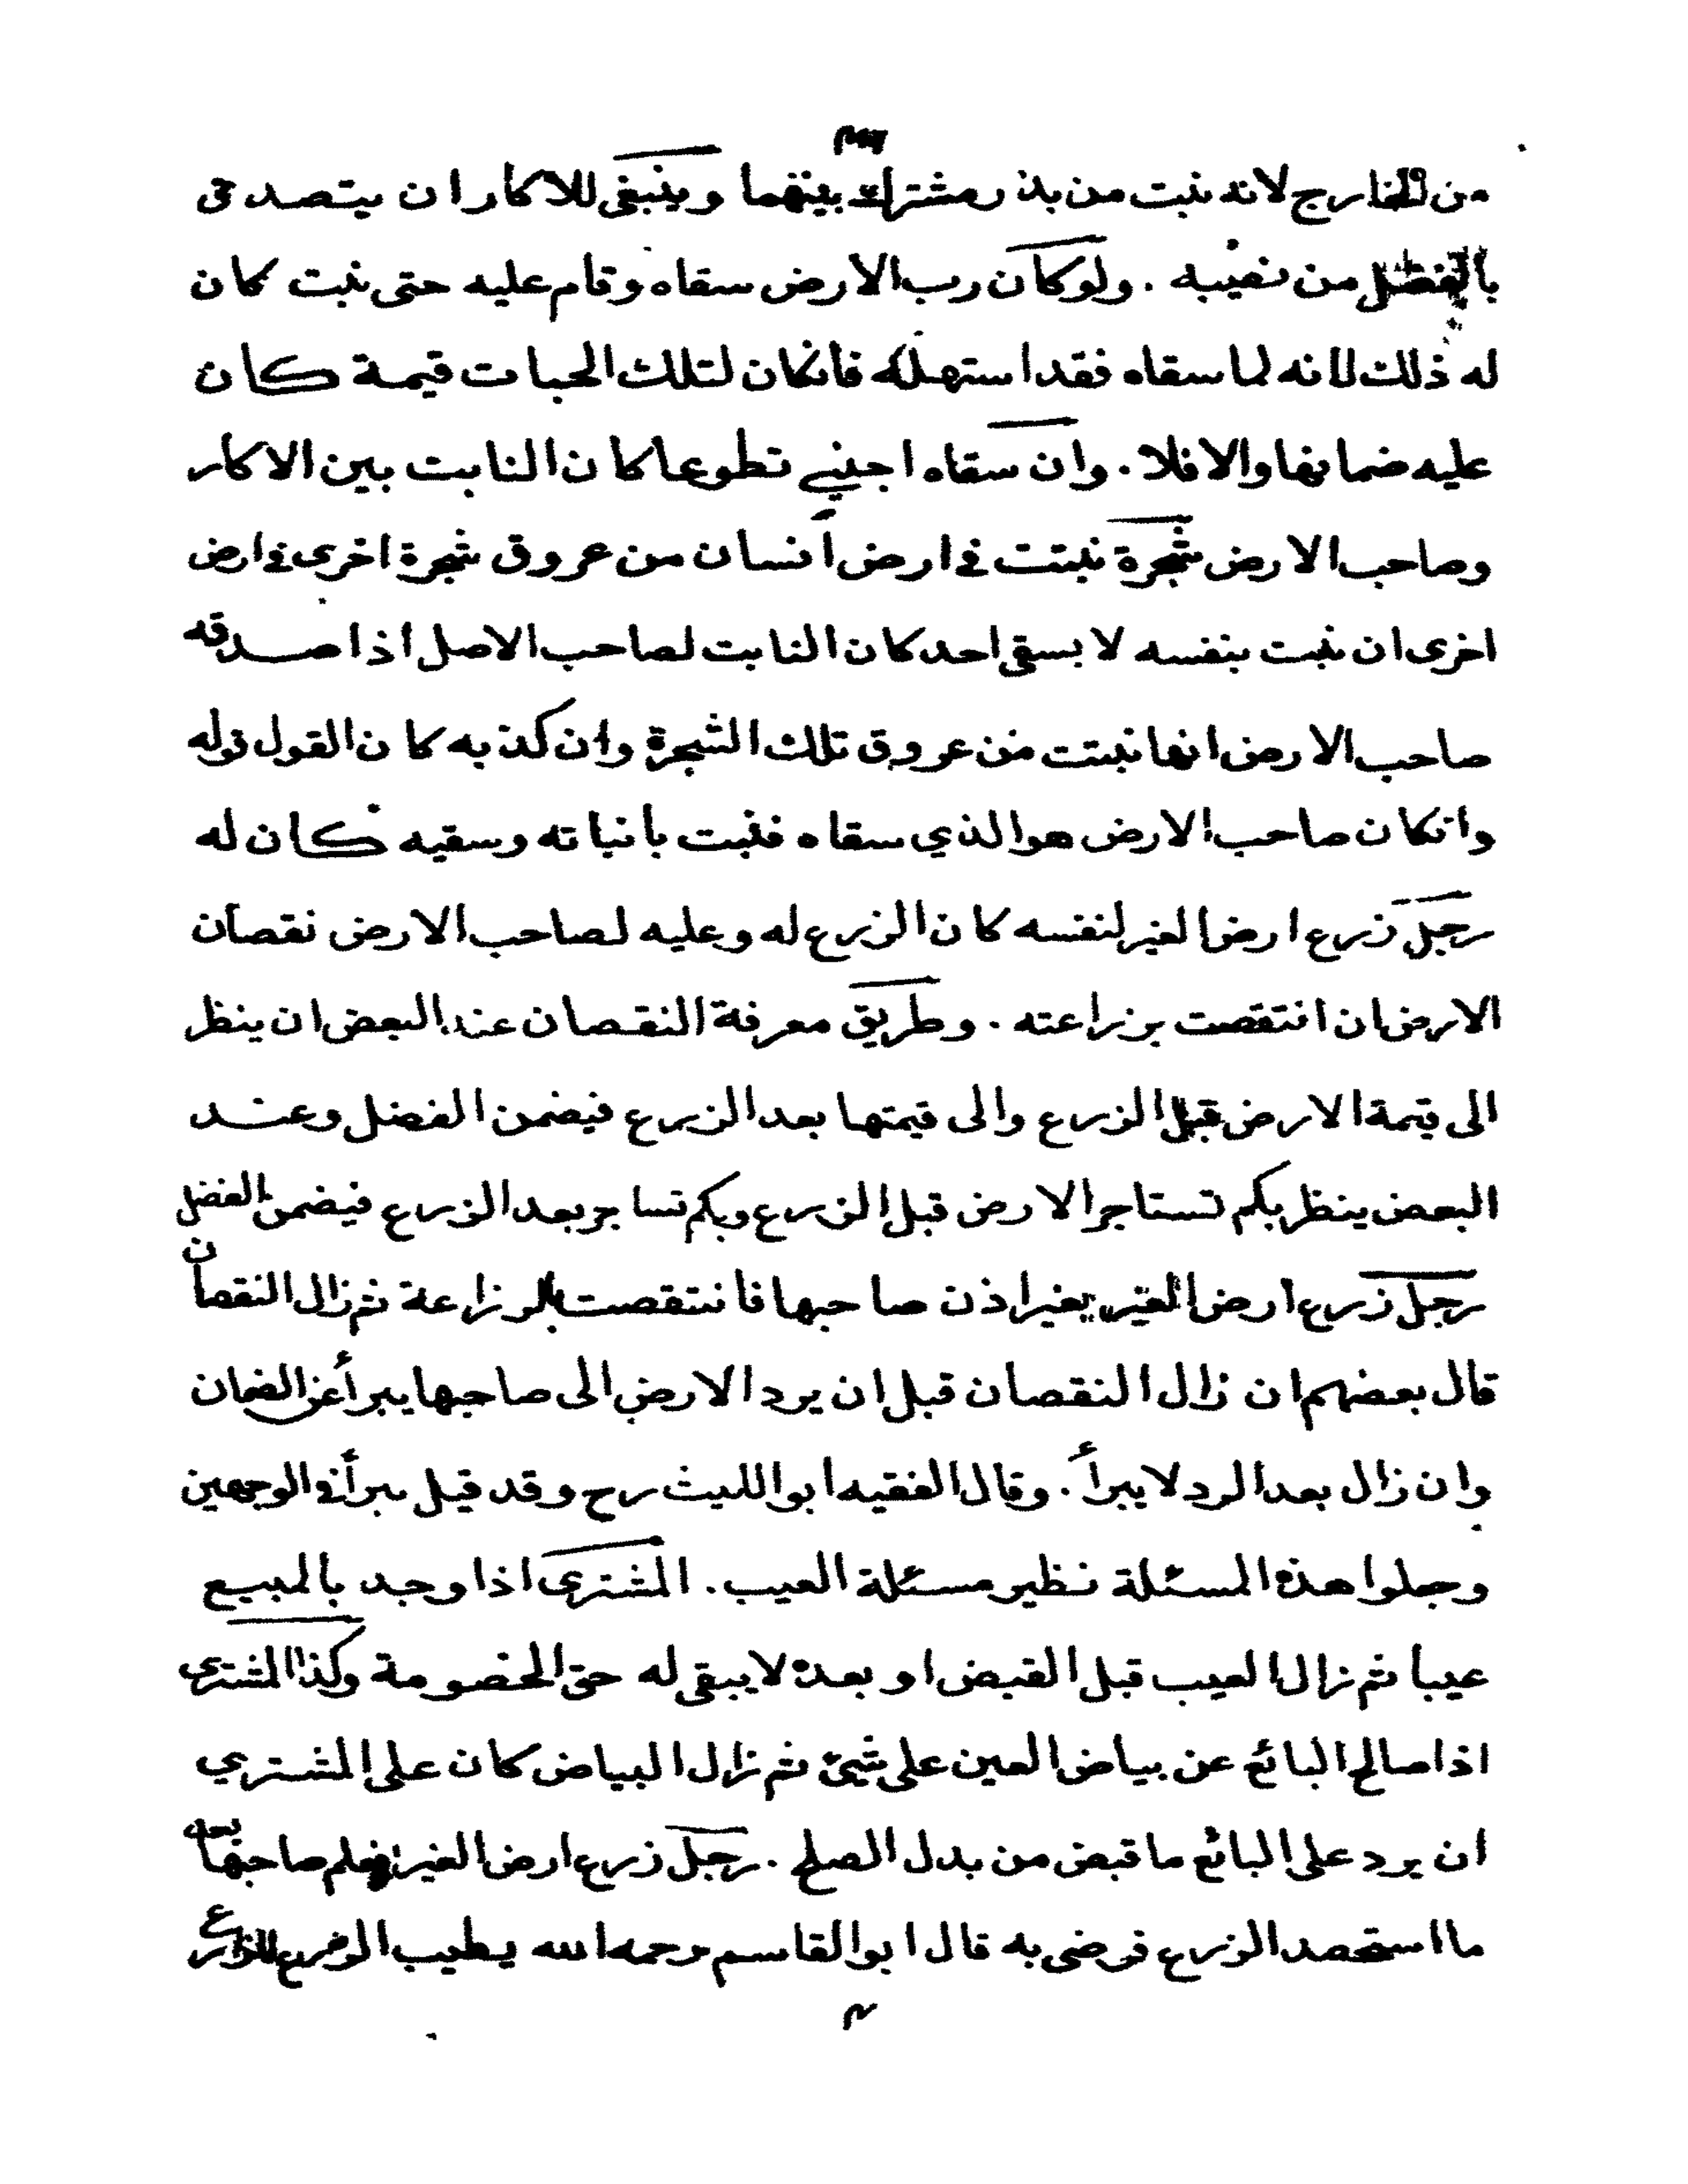 من الخارج لانه نبت من بذر مشترك بينهما وينبغي للاكار ان يتصدق
بالفضل من نصيبه . ولو كان رب الارض سقاه وقام عليه حتى نبت كان
له ذلك لانه لما سقاه فقد استهلكه فانكان لتلك الحبات قيمة كان
عليه ضمانها والا فلا . وان سقاه اجنبي تطوعا كان النابت بين الاكار
وصاحب الارض شجرة نبتت في ارض انسان من عروق شجرة اخرى في ارض
اخرى ان نبت بنفسه لا بسقي احد كان النابت لصاحب الاصل اذا صدقه
صاحب الارض انها نبتت من عروق تلك الشجرة وان كذبه كان القول قوله
وانكان صاحب الارض هو الذي سقاه فنبت بانباته وسقيه كان له
رجل زرع ارض الغير لنفسه كان الزرع له وعليه لصاحب الارض نقصان
الارض ان انتقصت بزراعته . وطريق معرفة النقصان عند البعض ان ينظر
الى قيمة الارض قبل الزرع والى قيمتها بعد الزرع فيضمن الفضل وعند
البعض ينظر بكم تستاجر الارض قبل الزرع وبكم تساجر بعد الزرع فيضمن الفضل
رجل زرع ارض الغير بغير اذن صاحبها فانتقصت بالزراعة ثم زال النقصان
قال بعضهم ان زال النقصان قبل ان يرد الارض الى صاحبها يبرأ عن الضمان
وان زال بعد الرد لا يبرأ . وقال الفقيه ابو الليث رح وقد قيل يبرأ في الوجهين
وجعلوا هذه المسئلة نظير مسئلة العيب . المشترى اذا وجد بالمبيع
عيبا ثم زال العيب قبل القبض او بعده لا يبقى له حق الخصومة وكذا المشترى
اذا صالح البائع عن بياض العين على شيئ ثم زال البياض كان على المشتري
ان يرد على البائع ما قبض من بدل الصلح . رجل زرع ارض الغير فعلم صاحبها بعد
ما استحصد الزرع فرضى به قال ابو القاسم رحمه الله يطيب الزرع للزارع